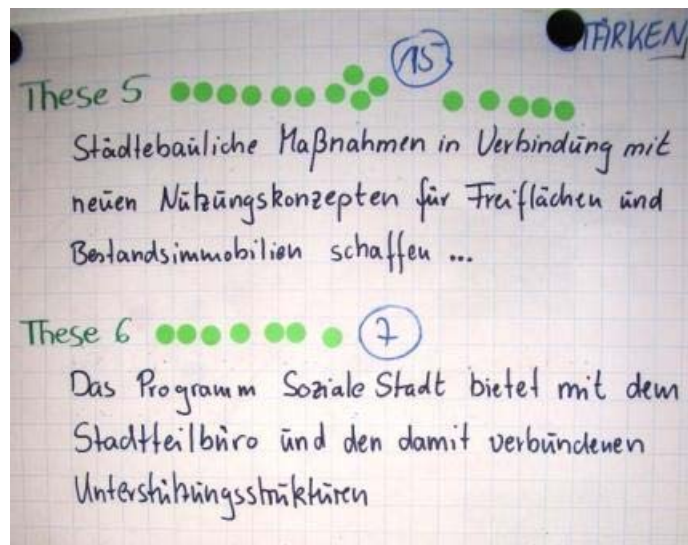 STÄRKEN
These 5 15
Städtebauliche Maßnahmen in Verbindung mit
neuen Nutzungskonzepten für Freiflächen und
Bestandsimmobilien schaffen ...
These 6 7
Das Programm Soziale Stadt bietet mit dem
Stadtteilbüro und den damit verbundenen
Unterstützungsstrukturen